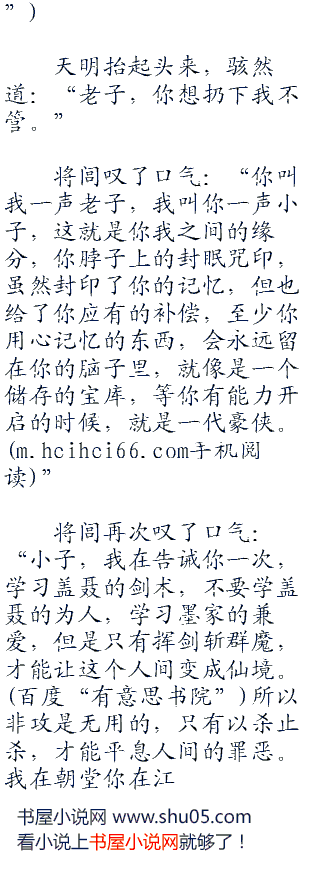 ”)
天明抬起头来，骇然
道：“老子，你想扔下我不
管。”
将闾叹了口气：“你叫
我一声老子，我叫你一声小
子，这就是你我之间的缘
分，你脖子上的封眠咒印，
虽然封印了你的记忆，但也
给了你应有的补偿，至少你
用心记忆的东西，会永远留
在你的脑子里，就像是一个
储存的宝库，等你有能力开
启的时候，就是一代豪侠。
(m.hcihci66.com手机阅
读)”
将闾再次叹了口气：
“小子，我在告诫你一次，
学习盖聂的剑术，不要学盖
聂的为人，学习墨家的兼
爱，但是只有挥剑斩群魔，
才能让这个人间变成仙境。
(百度“有意思书院”)所以
非攻是无用的，只有以杀止
杀，才能平息人间的罪恶。
我在朝堂你在江
书屋小说网 www.shu05.com
看小说上书屋小说网就够了！